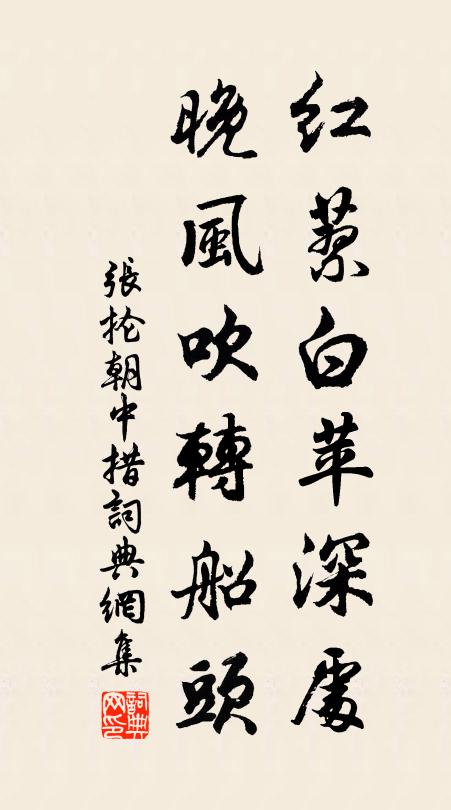 紅蓼白苹深處
晚風吹轉船頭
張掄朝中措詞典網集
詞典網印